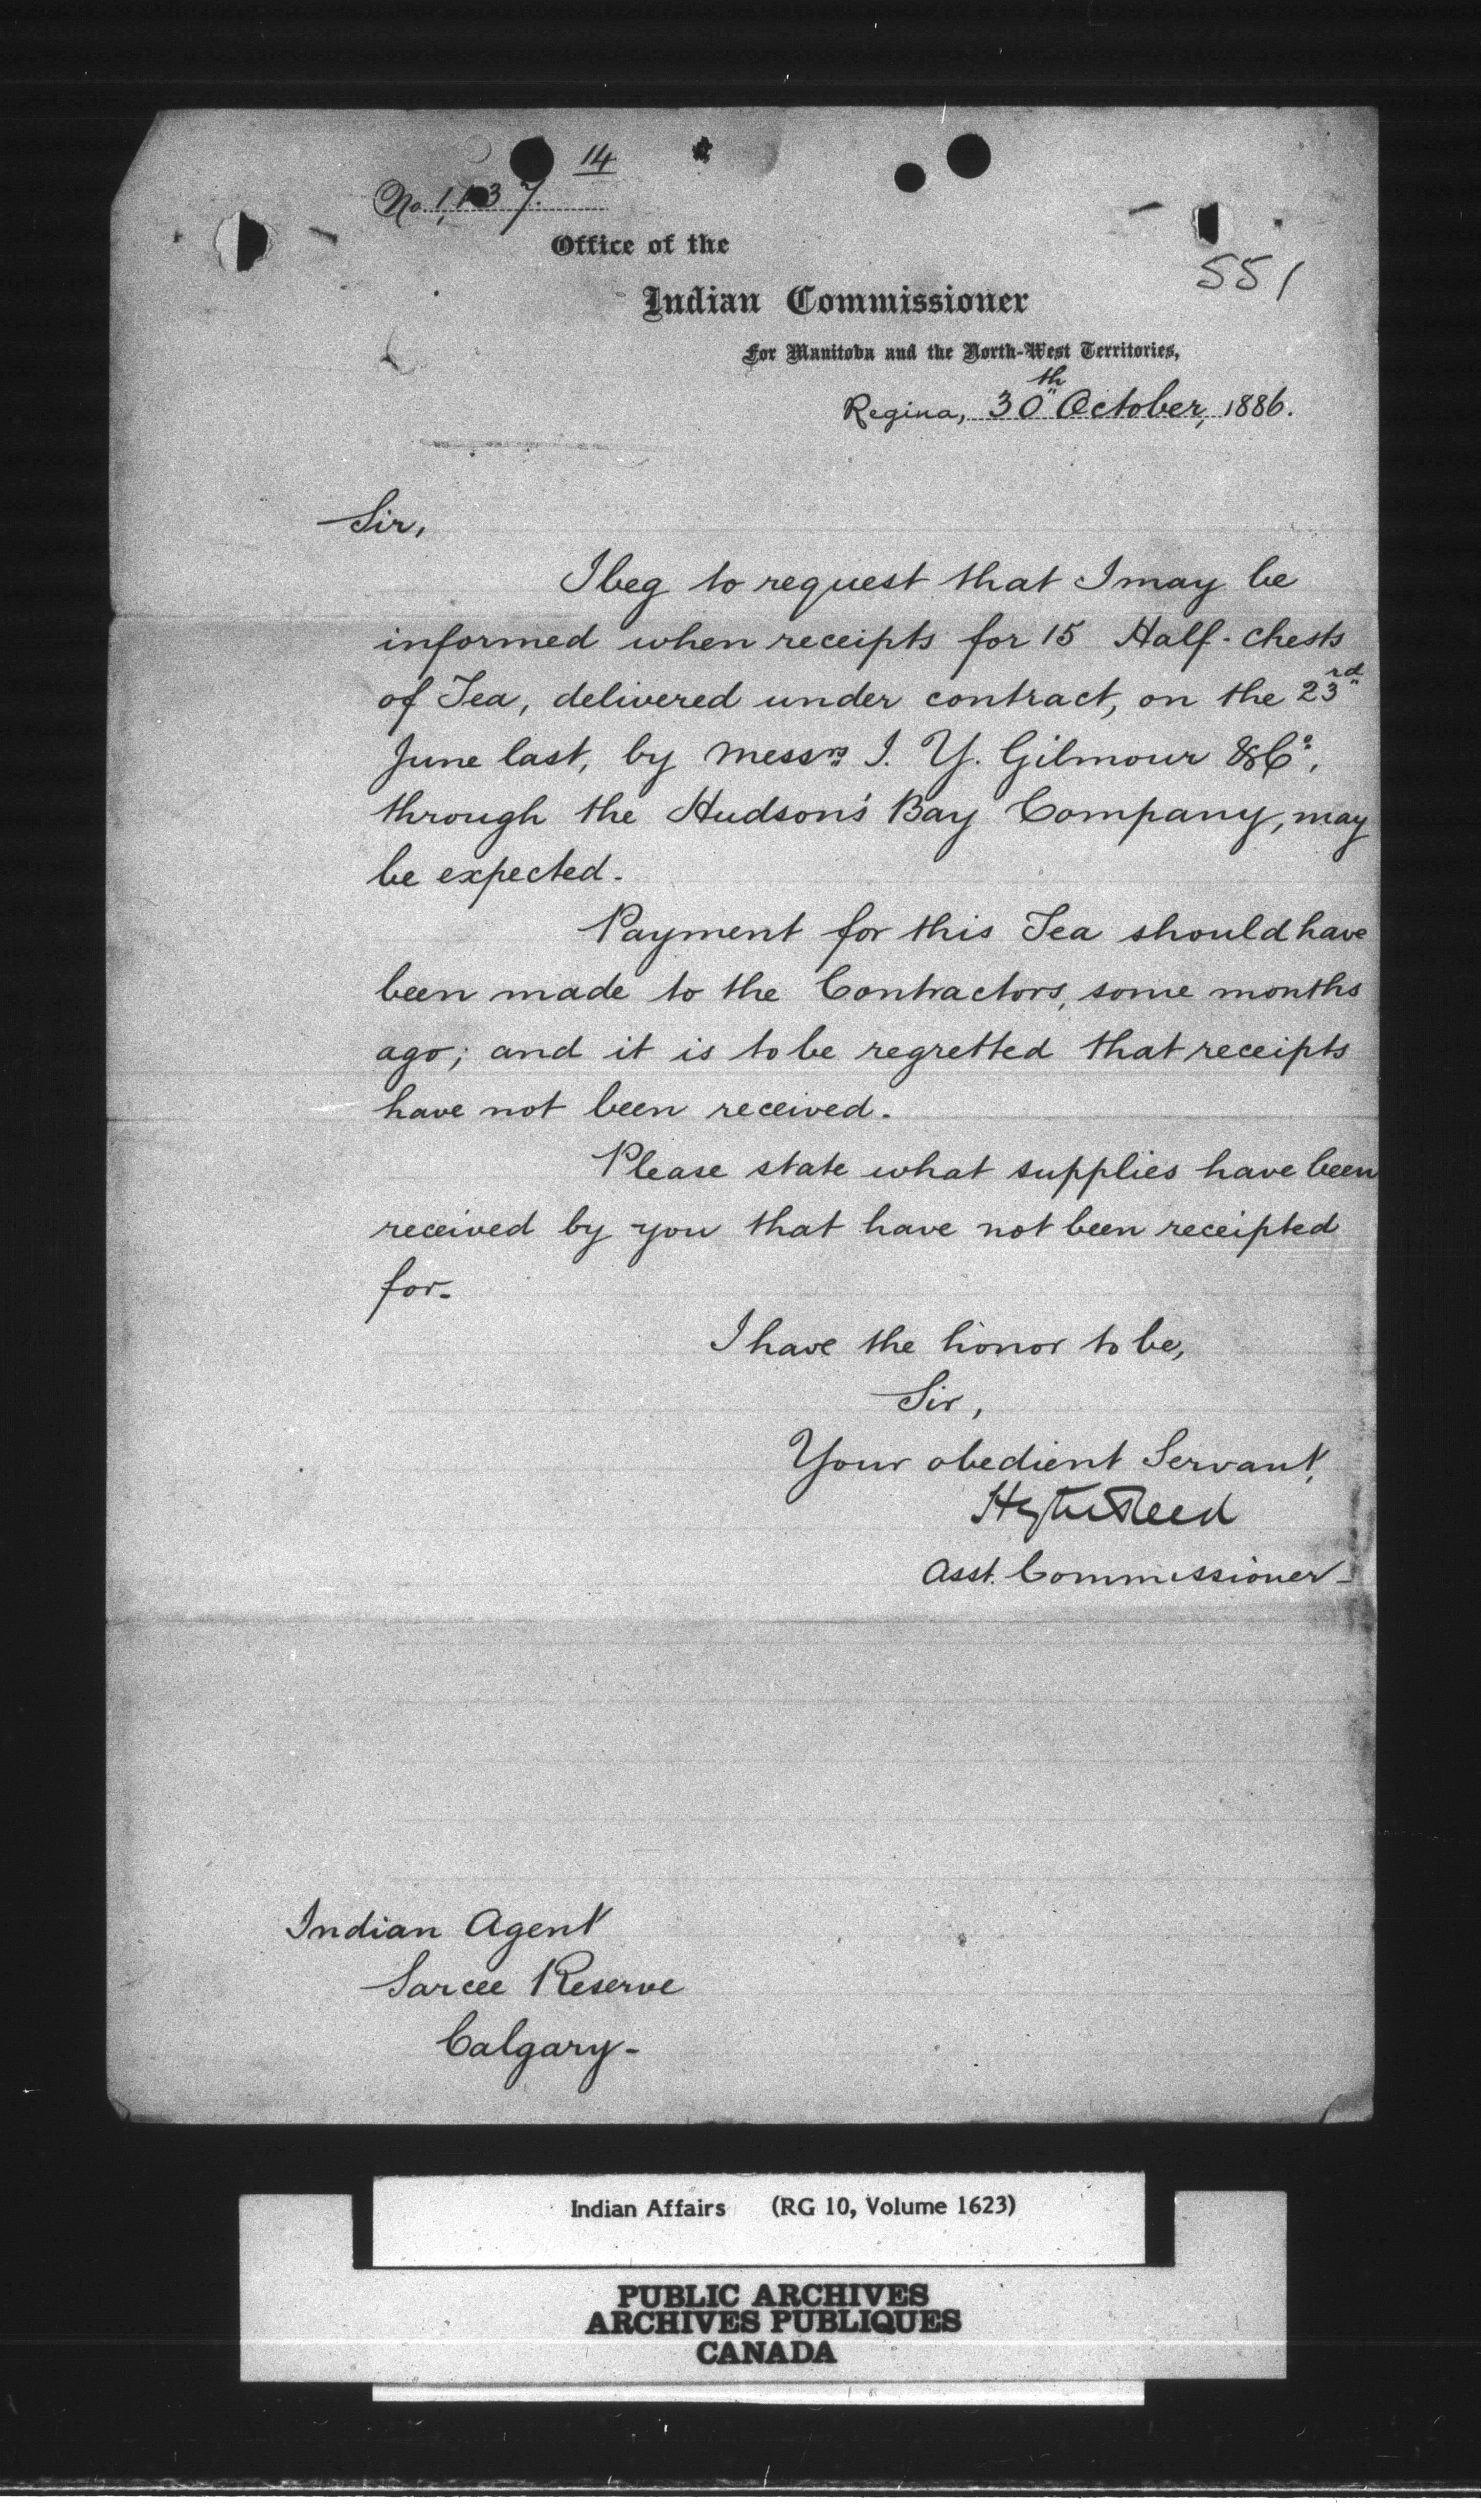 14
No. 1,137.
Office of the
551
Indian Commissioner
For Manitoba and the North-West Territories,
Regina, 30th October, 1886.
Sir,
I beg to request that I may be
informed when receipts for 15 Half-chests
of Tea, delivered under contract, on the 23rd
June last, by Messrs I. Y. Gilmour & Co,
through the Hudson's Bay Company, may
be expected.
Payment for this Tea should have
been made to the Contractors, some months
ago; and it is to be regretted that receipts
have not been received.
Please state what supplies have been
received by you that have not been receipted
for.
I have the honor to be,
Sir,
Your obedient Servant,
Hayter Reed
Asst. Commissioner
Indian Agent
Sarcee Reserve
Calgary-
Indian Affairs (RG 10, Volume 1623)
PUBLIC ARCHIVES
ARCHIVES PUBLIQUES
CANADA